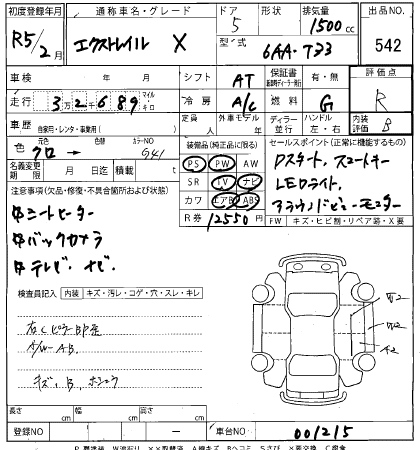 初度登録年月 通称車名・グレード ドア 形状 排気量 出品NO.
R5/2月 エクストレイル X 5 1500cc 542
型式 6AA-T33
車検 年 月 シフト AT 保証書 有・無 評価点
走行 3万2千689 マイル キロ 冷房 A/C 燃料 G R
車歴 自家用・レンタ・事業用( ) 定員 人 外車モデル 年 ディーラー 並行 ハンドル 左・右 内装評価 B
色 クロ → カラーNO G41 装備品(純正品に限る) セールスポイント(正常に機能するもの)
名義変更期限 月 日迄 積載 t PS PW AW Dスタート、スマートキー
注意事項(欠品・修復・不具合箇所および状態) SR TV ナビ LEDライト、
中シートヒーター カワ エアB ABS アラウンドビューモニター
中バックカメラ R券 12550円 FW キズ・ヒビ割・リペア跡・X要
中テレビ・ナビ・
検査員記入 内装 キズ・汚レ・コゲ・穴・スレ・キレ
キズ・B、
長さ cm 幅 cm 高さ cm
登録NO ー 車台NO 001215